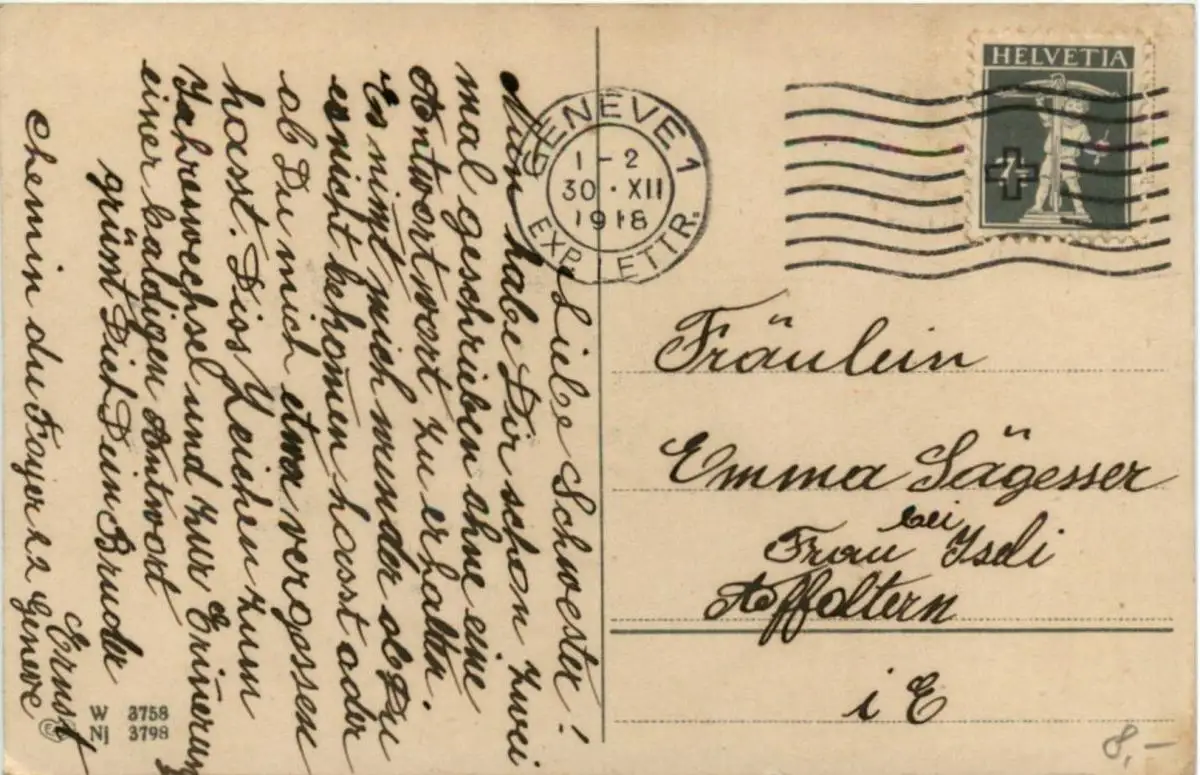 Liebe Schwester!
Nun habe Dir schon zwei
mal geschrieben ohne eine
Antwort wort zu erhalten.
Es nimt mich wunder ob Du
es nicht bekomen hasst oder
ob Du mich etwa vergossen
hasst. Dies Zeichen zum
Jahreswechsel und zur Erinerung
einer baldigen Antwort
grüsst Dich Dein Bruder
Ernst
Chemin du 22 Geneve
W 3758
Nj 3798
GENÈVE 1
1-2
30·XII
1918
EXP. LETTR.
HELVETIA
7
Fräulein
Emma Sägesser
bei
Frau Iseli
Affoltern
i E
8,-